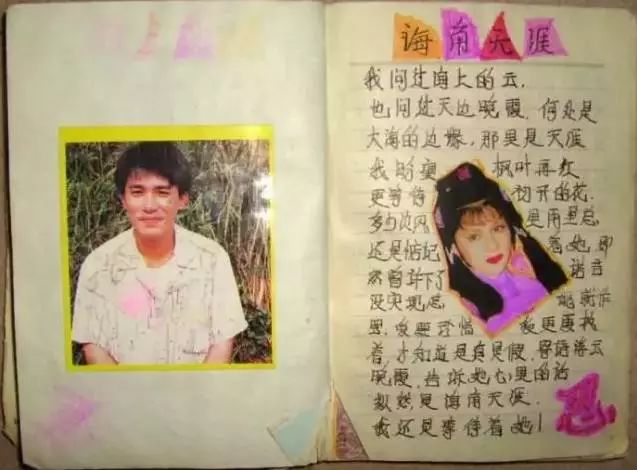 诲角天涯
我问过海上的云,
也问过天边晚霞,何处是
大海的边缘,那里是天涯
我盼望 枫叶再红
更等待 初开的花.
多少次风 里雨里总
还是惦记 着她 即
然曾许下了 诺言
没实现 她就在
里,我要珍惜 我更要找
着,才知道是真是假,寄语浮云
晚霞,告诉她心里的话
纵然是海角天涯.
我还是等待着她!